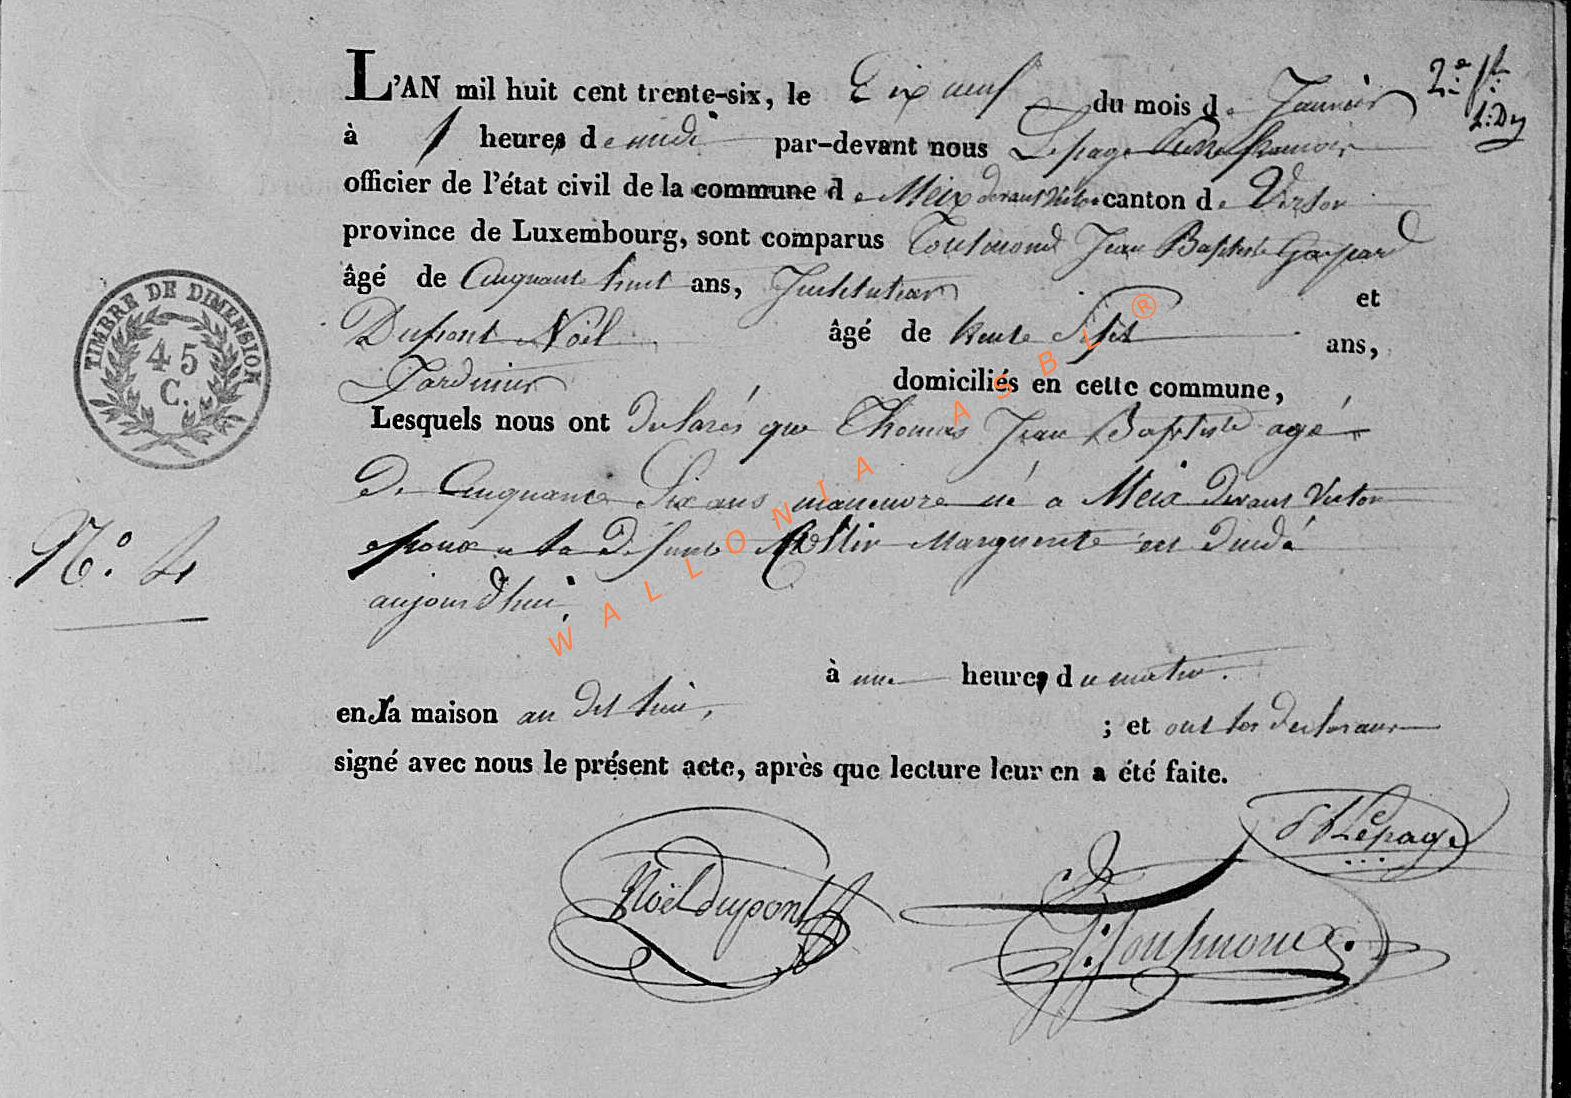 L'AN mil huit cent trente-six, le Dix neuf du mois de Janvier
2e ft
L:Dy
à 1 heures de midi par-devant nous Lepage
officier de l'état civil de la commune de Meix devant Virton canton de Virton
province de Luxembourg, sont comparus Toussaint Jean Baptiste Gaspard
âgé de Cinquante huit ans, Instituteur et
Dupont Noël âgé de trente Sept ans,
Jardinier domiciliés en cette commune,
Lesquels nous ont declarés que Thomas Jean Baptiste agé
de Cinquante Six ans manœuvre né a Meix Devant Virton
epoux a la Defunte Marguerite est decedé
aujourd'hui,
à une heures du matin.
en sa maison au dit lieu, ; et ont les declarans
signé avec nous le présent acte, après que lecture leur en a été faite.
Lepage
Noël dupont
TIMBRE DE DIMENSION
45
C.
N.° 4
WALLONIA ASBL ®